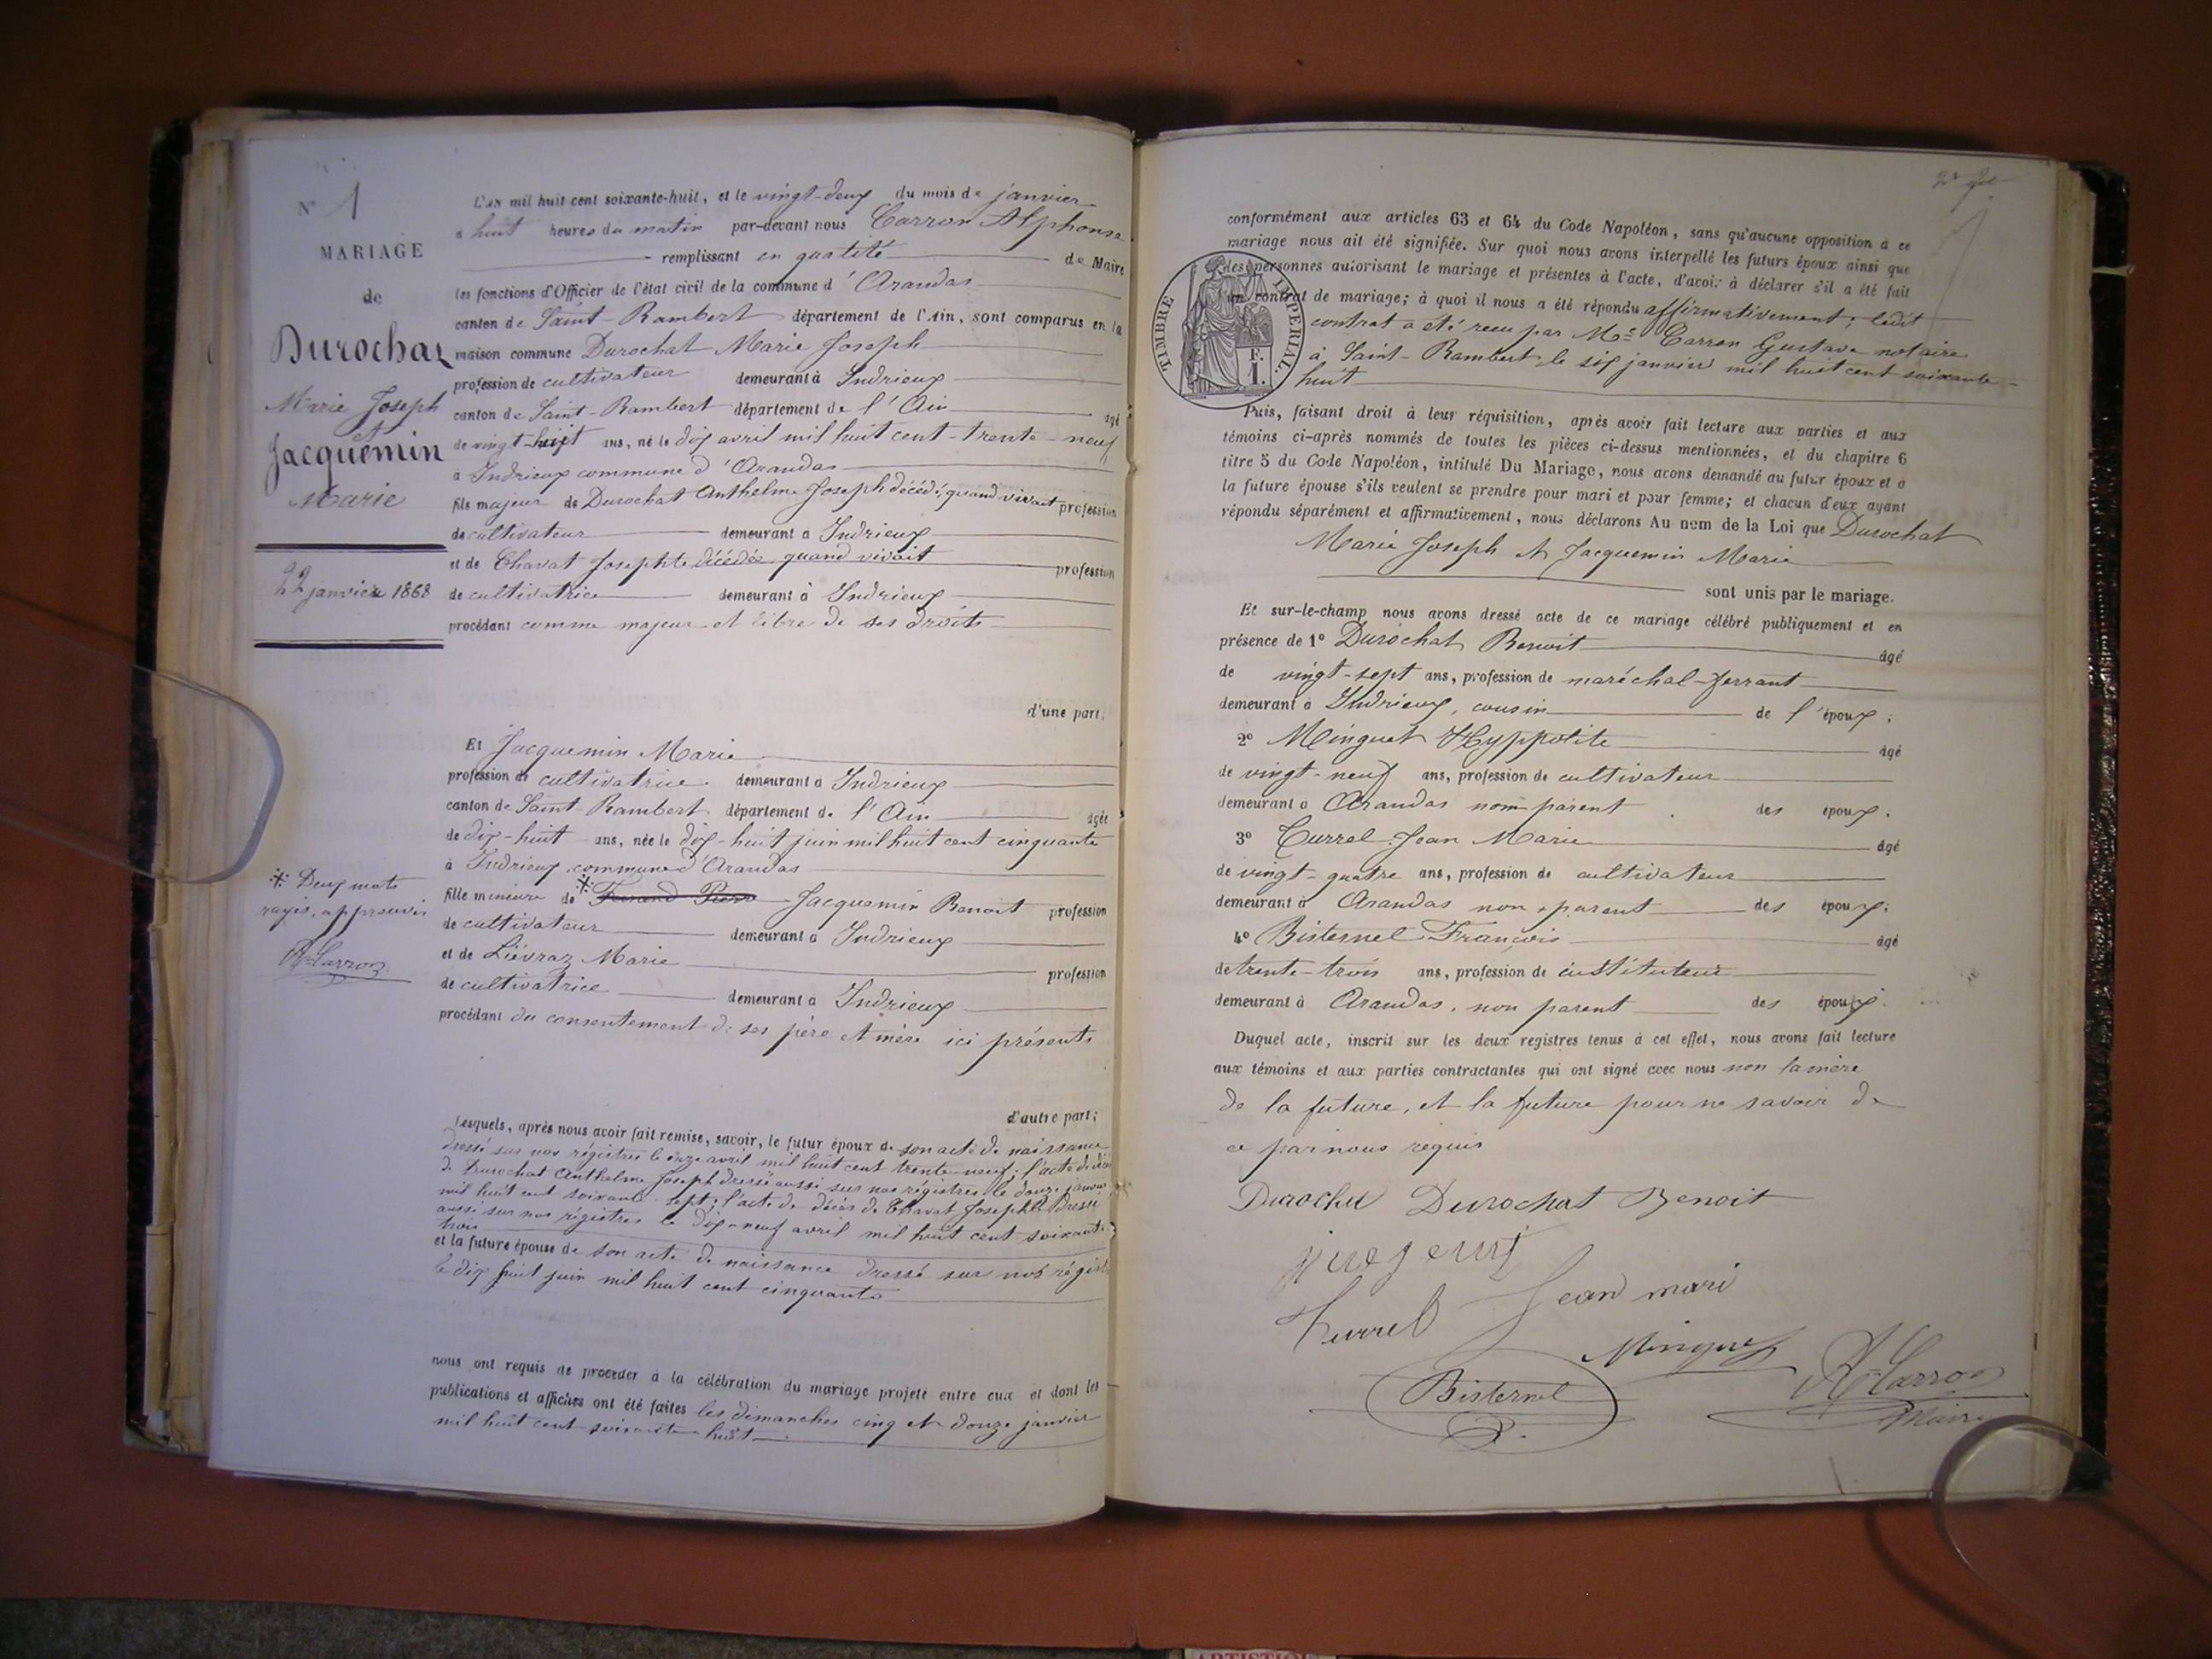 N° 1
MARIAGE
de
Durochat
Marie Joseph
et
Jacquemin
Marie
22 janvier 1868
* Deux mots
rayés, approuvés
A. Carron
L'AN mil huit cent soixante-huit, et le vingt-deux du mois de janvier
à huit heures du matin par-devant nous Carron Alphonse
remplissant en qualité de Maire
les fonctions d'Officier de l'état civil de la commune d'Arandas
canton de Saint-Rambert département de l'Ain, sont comparus en la
maison commune Durochat Marie Joseph
profession de cultivateur demeurant à Indrieux
canton de Saint-Rambert département de l'Ain âgé
de vingt-huit ans, né le dix avril mil huit cent-trente-neuf
à Indrieux commune d'Arandas
fils majeur de Durochat Anthelme Joseph décédé, quand vivait profession
de cultivateur demeurant à Indrieux
et de Chavat Josephte décédée, quand vivait profession
de cultivatrice demeurant à Indrieux
procédant comme majeur et libre de ses droits
d'une part,
Et Jacquemin Marie
profession de cultivatrice demeurant à Indrieux
canton de Saint-Rambert département de l'Ain âgée
de dix-huit ans, née le dix-huit juin mil huit cent cinquante
à Indrieux commune d'Arandas
fille mineure de * Jacquemin Benoit profession
de cultivateur demeurant à Indrieux
et de Liévraz Marie profession
de cultivatrice demeurant à Indrieux
procédant du consentement de ses père et mère ici présents
d'autre part;
Lesquels, après nous avoir fait remise, savoir, le futur époux de son acte de naissance
dressé sur nos régistres le onze avril mil huit cent trente-neuf; l'acte de décès
de Durochat Anthelme Joseph dressé aussi sur nos régistres le douze janvier
mil huit cent soixante-sept; l'acte de décès de Chavat Josephte dressé
aussi sur nos régistres le dix-neuf avril mil huit cent soixante
trois
et la future épouse de son acte de naissance dressé sur nos régistres
le dix huit juin mil huit cent cinquante
nous ont requis de procéder à la célébration du mariage projeté entre eux et dont les
publications et affiches ont été faites les dimanches cinq et douze janvier
mil huit cent soixante huit
conformément aux articles 63 et 64 du Code Napoléon, sans qu'aucune opposition à ce
mariage nous ait été signifiée. Sur quoi nous avons interpellé les futurs époux ainsi que
les personnes autorisant le mariage et présentes à l'acte, d'avoir à déclarer s'il a été fait
un contrat de mariage; à quoi il nous a été répondu affirmativement; ledit
contrat a été reçu par Me Carron Gustave notaire
à Saint-Rambert, le six janvier mil huit cent soixante-
huit
TIMBRE IMPERIAL
F.
1.
Puis, faisant droit à leur réquisition, après avoir fait lecture aux parties et aux
témoins ci-après nommés de toutes les pièces ci-dessus mentionnées, et du chapitre 6
titre 5 du Code Napoléon, intitulé Du Mariage, nous avons demandé au futur époux et à
la future épouse s'ils veulent se prendre pour mari et pour femme; et chacun d'eux ayant
répondu séparément et affirmativement, nous déclarons Au nom de la Loi que Durochat
Marie Joseph et Jacquemin Marie
sont unis par le mariage.
Et sur-le-champ nous avons dressé acte de ce mariage célébré publiquement et en
présence de 1° Durochat Benoit âgé
de vingt-sept ans, profession de maréchal-ferrant
demeurant à Indrieux, cousin de l'époux;
2° Minguet Hyppolite âgé
de vingt-neuf ans, profession de cultivateur
demeurant à Arandas non parent des époux;
3° Turrel Jean Marie âgé
de vingt-quatre ans, profession de cultivateur
demeurant à Arandas non parent des époux;
4° Bisternel François âgé
de trente-trois ans, profession de instituteur
demeurant à Arandas, non parent des époux.
Duquel acte, inscrit sur les deux registres tenus à cet effet, nous avons fait lecture
aux témoins et aux parties contractantes qui ont signé avec nous non la mère
de la future, et la future pour ne savoir de
ce par nous requis
Durochat Durochat Benoit
Turrel Jean mari
Minguet
Bisternel
A. Carron
Maire